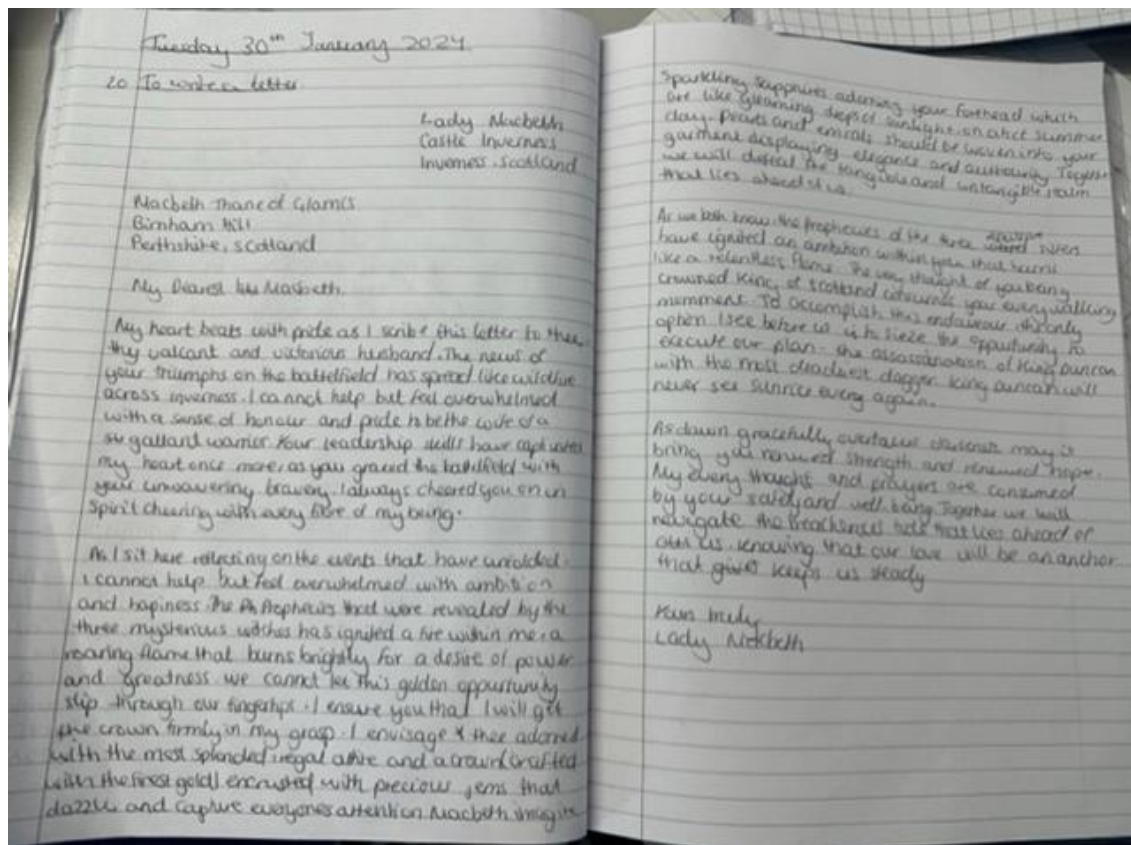 Tuesday 30th January 2024
20 To write a letter
Lady Macbeth
Castle Inverness
Inverness, Scotland
Macbeth Thane of Glamis
Birnham Hill
Perthshire, Scotland
My Dearest Macbeth,
My heart beats with pride as I scribe this letter to thee,
thy valiant and victorious husband. The news of
your triumphs on the battelfield has spread like wildfire
across inverness. I cannot help but feel overwhelmed
with a sense of honour and pride to be the wife of a
gallant warrior. Your leadership skills have captured
my heart once more, as you graced the battelfield with
your unwavering bravery. I always cheered you on in
Spirit cheering with every fibre of my being.
As I sit here reflecting on the events that have unfolded.
I cannot help but feel overwhelmed with ambition
and hapiness. The Prophecies that were revealed by the
three mysterious witches has ignited a fire within me, a
roaring flame that burns brightly for a desire of power
and greatness we cannot let this golden oppurtunity
slip through our fingertips. I ensure you that I will get
the crown firmly in my grasp. I envisage thee adorned
with the most splended regal attire and a crown crafted
with the finest gold encrusted with precious gems that
dazzle and capture everyones attention Macbeth imagine
Sparkling Sapphires adorning your forehead which
are like gleaming drops of sunlight on a hot summer
day. Pearls and emrals should be woven into your
garment displaying elegance and authourity. Together
we will defeat the tangible and untangible realm
that lies ahead of us.
As we both know, the prophecies of the three
have ignited an ambition within you that burns
like a relentless flame. The very thought of you being
crowned King of Scotland consumes your every walking
momment. To accomplish this endeavour the only
option I see before us is to sieze the oppurtunity to
execute our plan - the assassanation of King Duncan
with the most deadliest dagger. King Duncan will
never see sunrise every again.
As dawn gracefully overtakes darkness may it
bring you renewed strength and renewed hope.
My every thought and prayers are consumed
by your safety and well being. Together we will
navigate the treacherous that lies ahead of
us. Knowing that our love will be an anchor
that keeps us steady
Yours truly,
Lady Mackbeth